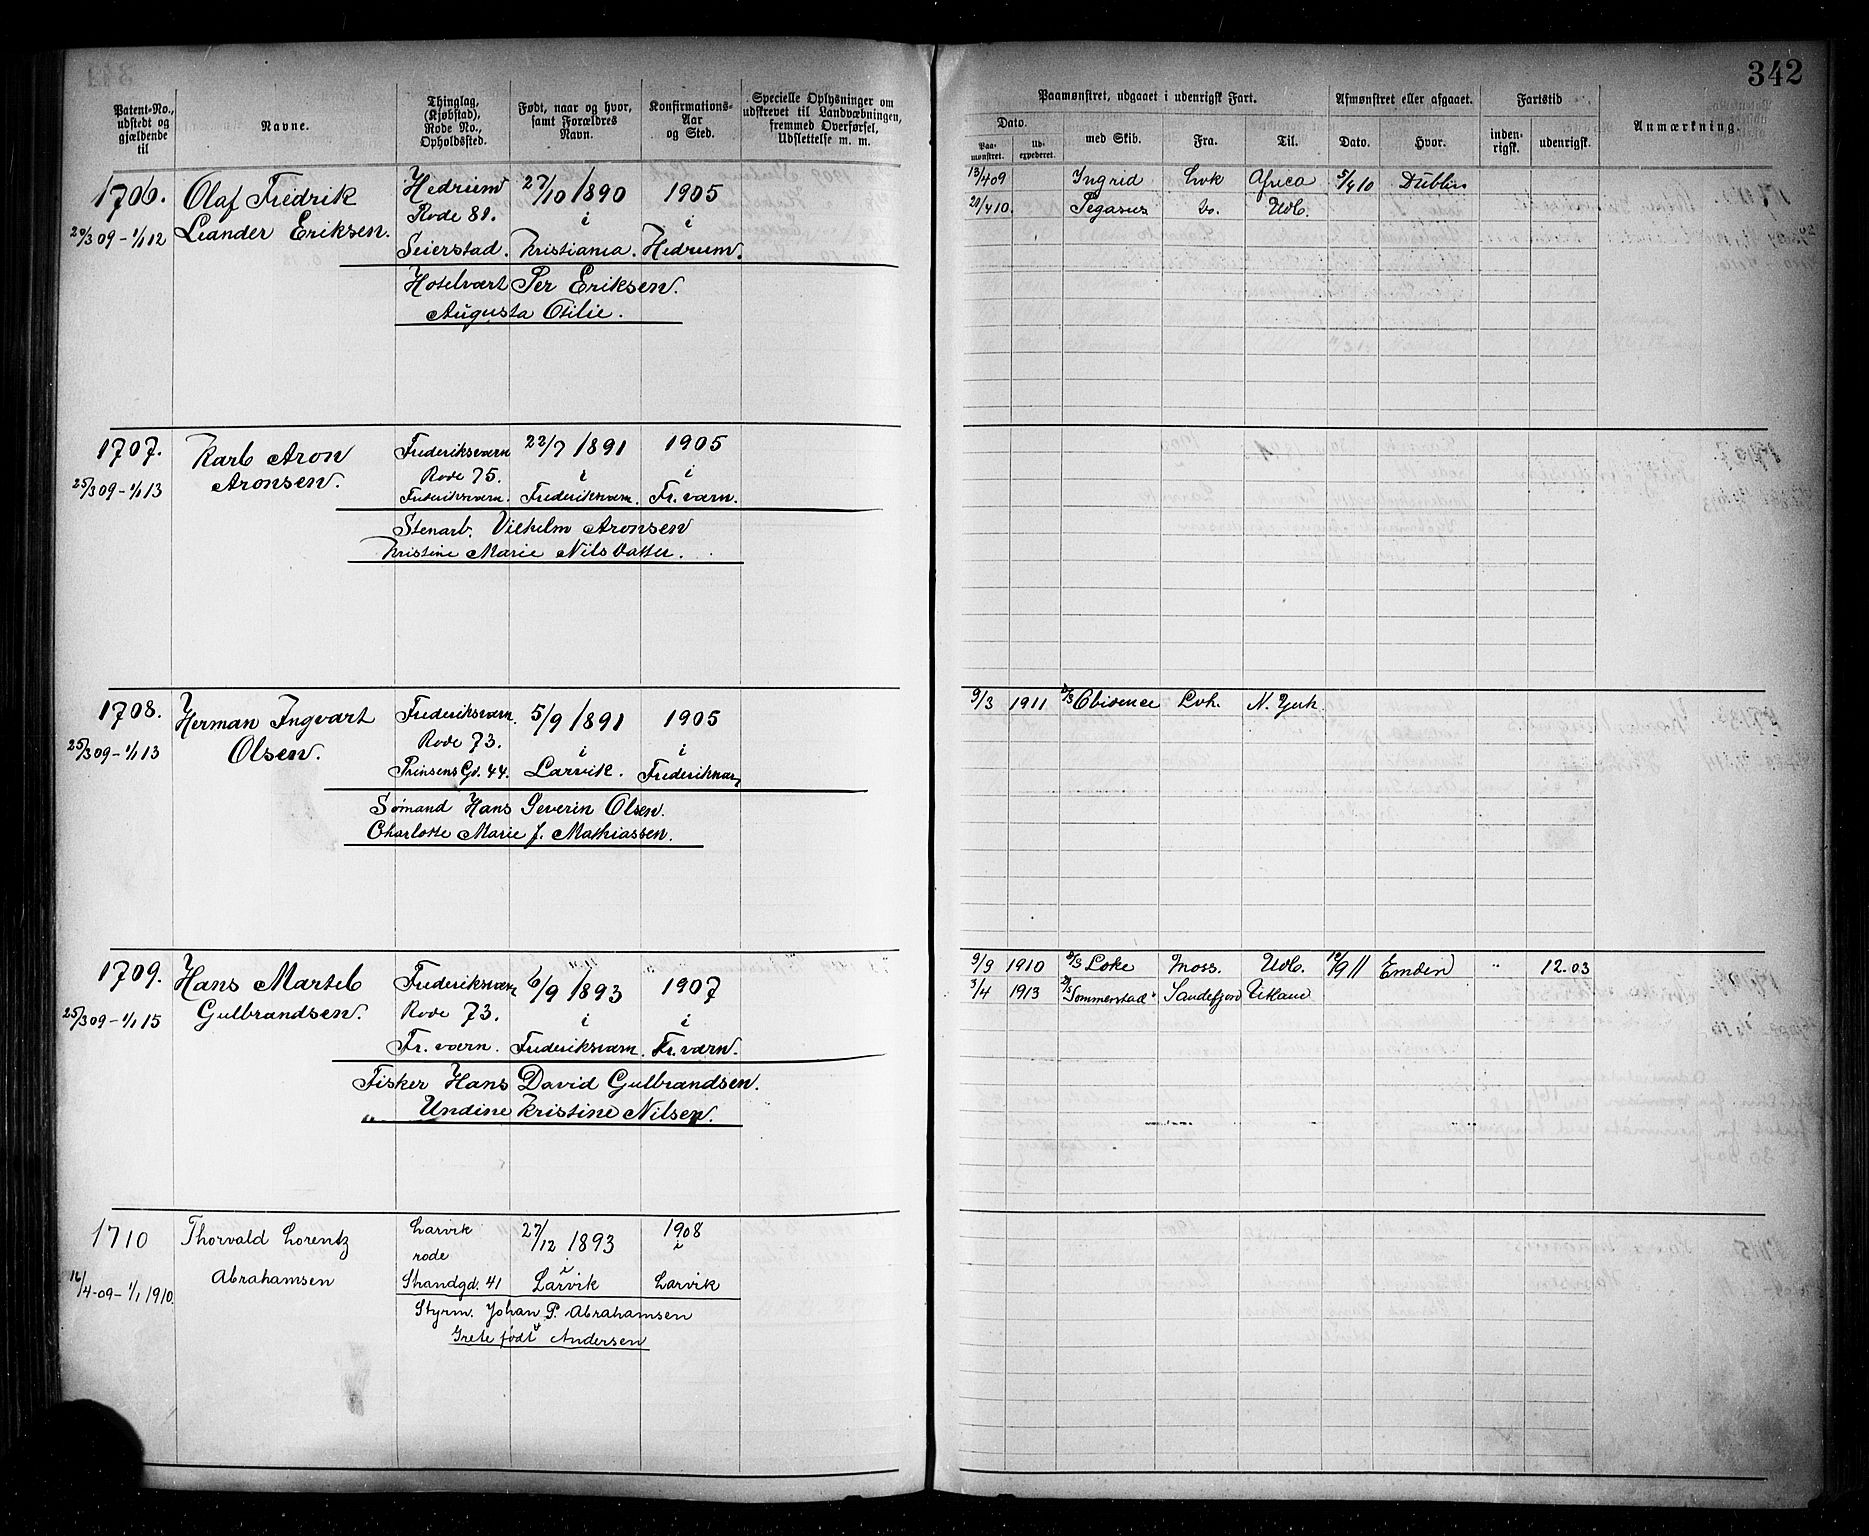 342
Patent-No., udstedt og gjældende til
Navne.
Thinglag, (Kjøbstad), Rode No., Opholdssted.
Født, naar og hvor, samt Forældres Navn.
Konfirmations-Aar og Sted.
Specielle Oplysninger om udskrevet til Landvæbningen, fremmed Overførsel, Udslettelse m. m.
Paamønstret, udgaaet i udenrigsk Fart.
Afmønstret eller afgaaet.
Fartstid
Anmærkning.
Dato.
Paamønstret.
Udexpederet.
med Skib.
Fra.
Til.
Dato.
Hvor.
indenrigsk.
udenrigsk.
1706. Olaf Fredrik Hedrum 27/10 1890 1905
Rode 81. i i
20/3 09 - 1/1 12 Leander Eriksen. Seierstad. Kristiania. Hedrum.
Hotelvært Per Eriksen.
Augusta Otilie.
13/4 09 Ingrid Lvk Africa 5/4 10 Dublin
20/4 10. Pegasus Do. Udl.
1707. Karl Aron Frederiksværn 22/7 1891 1905
Rode 75. i i
25/3 09 - 1/1 13 Aronsen. Frederiksværn. Frederiksværn. Fr. værn.
Stenarb. Vilhelm Aronsen
Kristine Marie Nilsdatter.
1708. Herman Ingvart Frederiksværn. 5/9 1891 1905
Rode 73. i i
25/3 09 - 1/1 13 Olsen. Prinsens Gd. 44. Larvik. Frederiksværn
Sømand Hans Severin Olsen.
Charlotte Marie f. Mathiassen.
9/3 1911 Lvk. N. York
1709. Hans Martel Frederiksværn 6/9 1893 1907
Rode 73. i i
25/3 09 - 1/1 15 Gulbrandsen. Fr. værn. Frederiksværn. Fr. værn.
Fisker Hans David Gulbrandsen.
" Undine Kristine Nilsen.
9/9 1910 D/S Loke Moss. Udl. 10/9 11 Emden " 12.03
3/4 1913 D/S Sommerstad" Sandefjord Utland
1710 Thorvald Lorentz Larvik 27/12 1893 1908
rode i i
16/4-09 - 1/1 1910. Abrahamsen Strandgd. 41 Larvik Larvik
Styrm. Johan P. Abrahamsen
Grete født Andersen